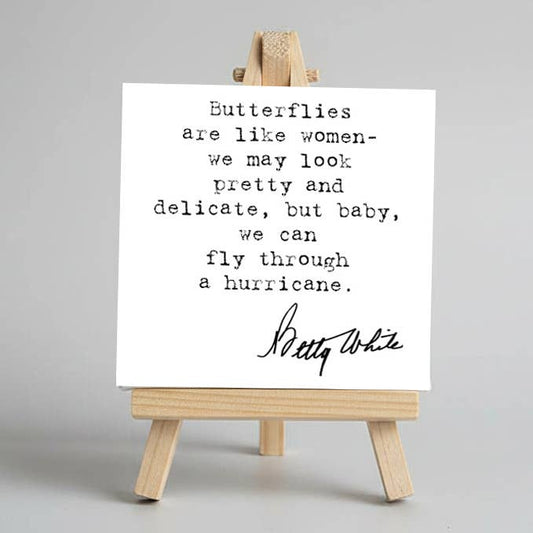 Butterflies
are like women-
we may look
pretty and
delicate, but baby,
we can
fly through
a hurricane.
Betty White